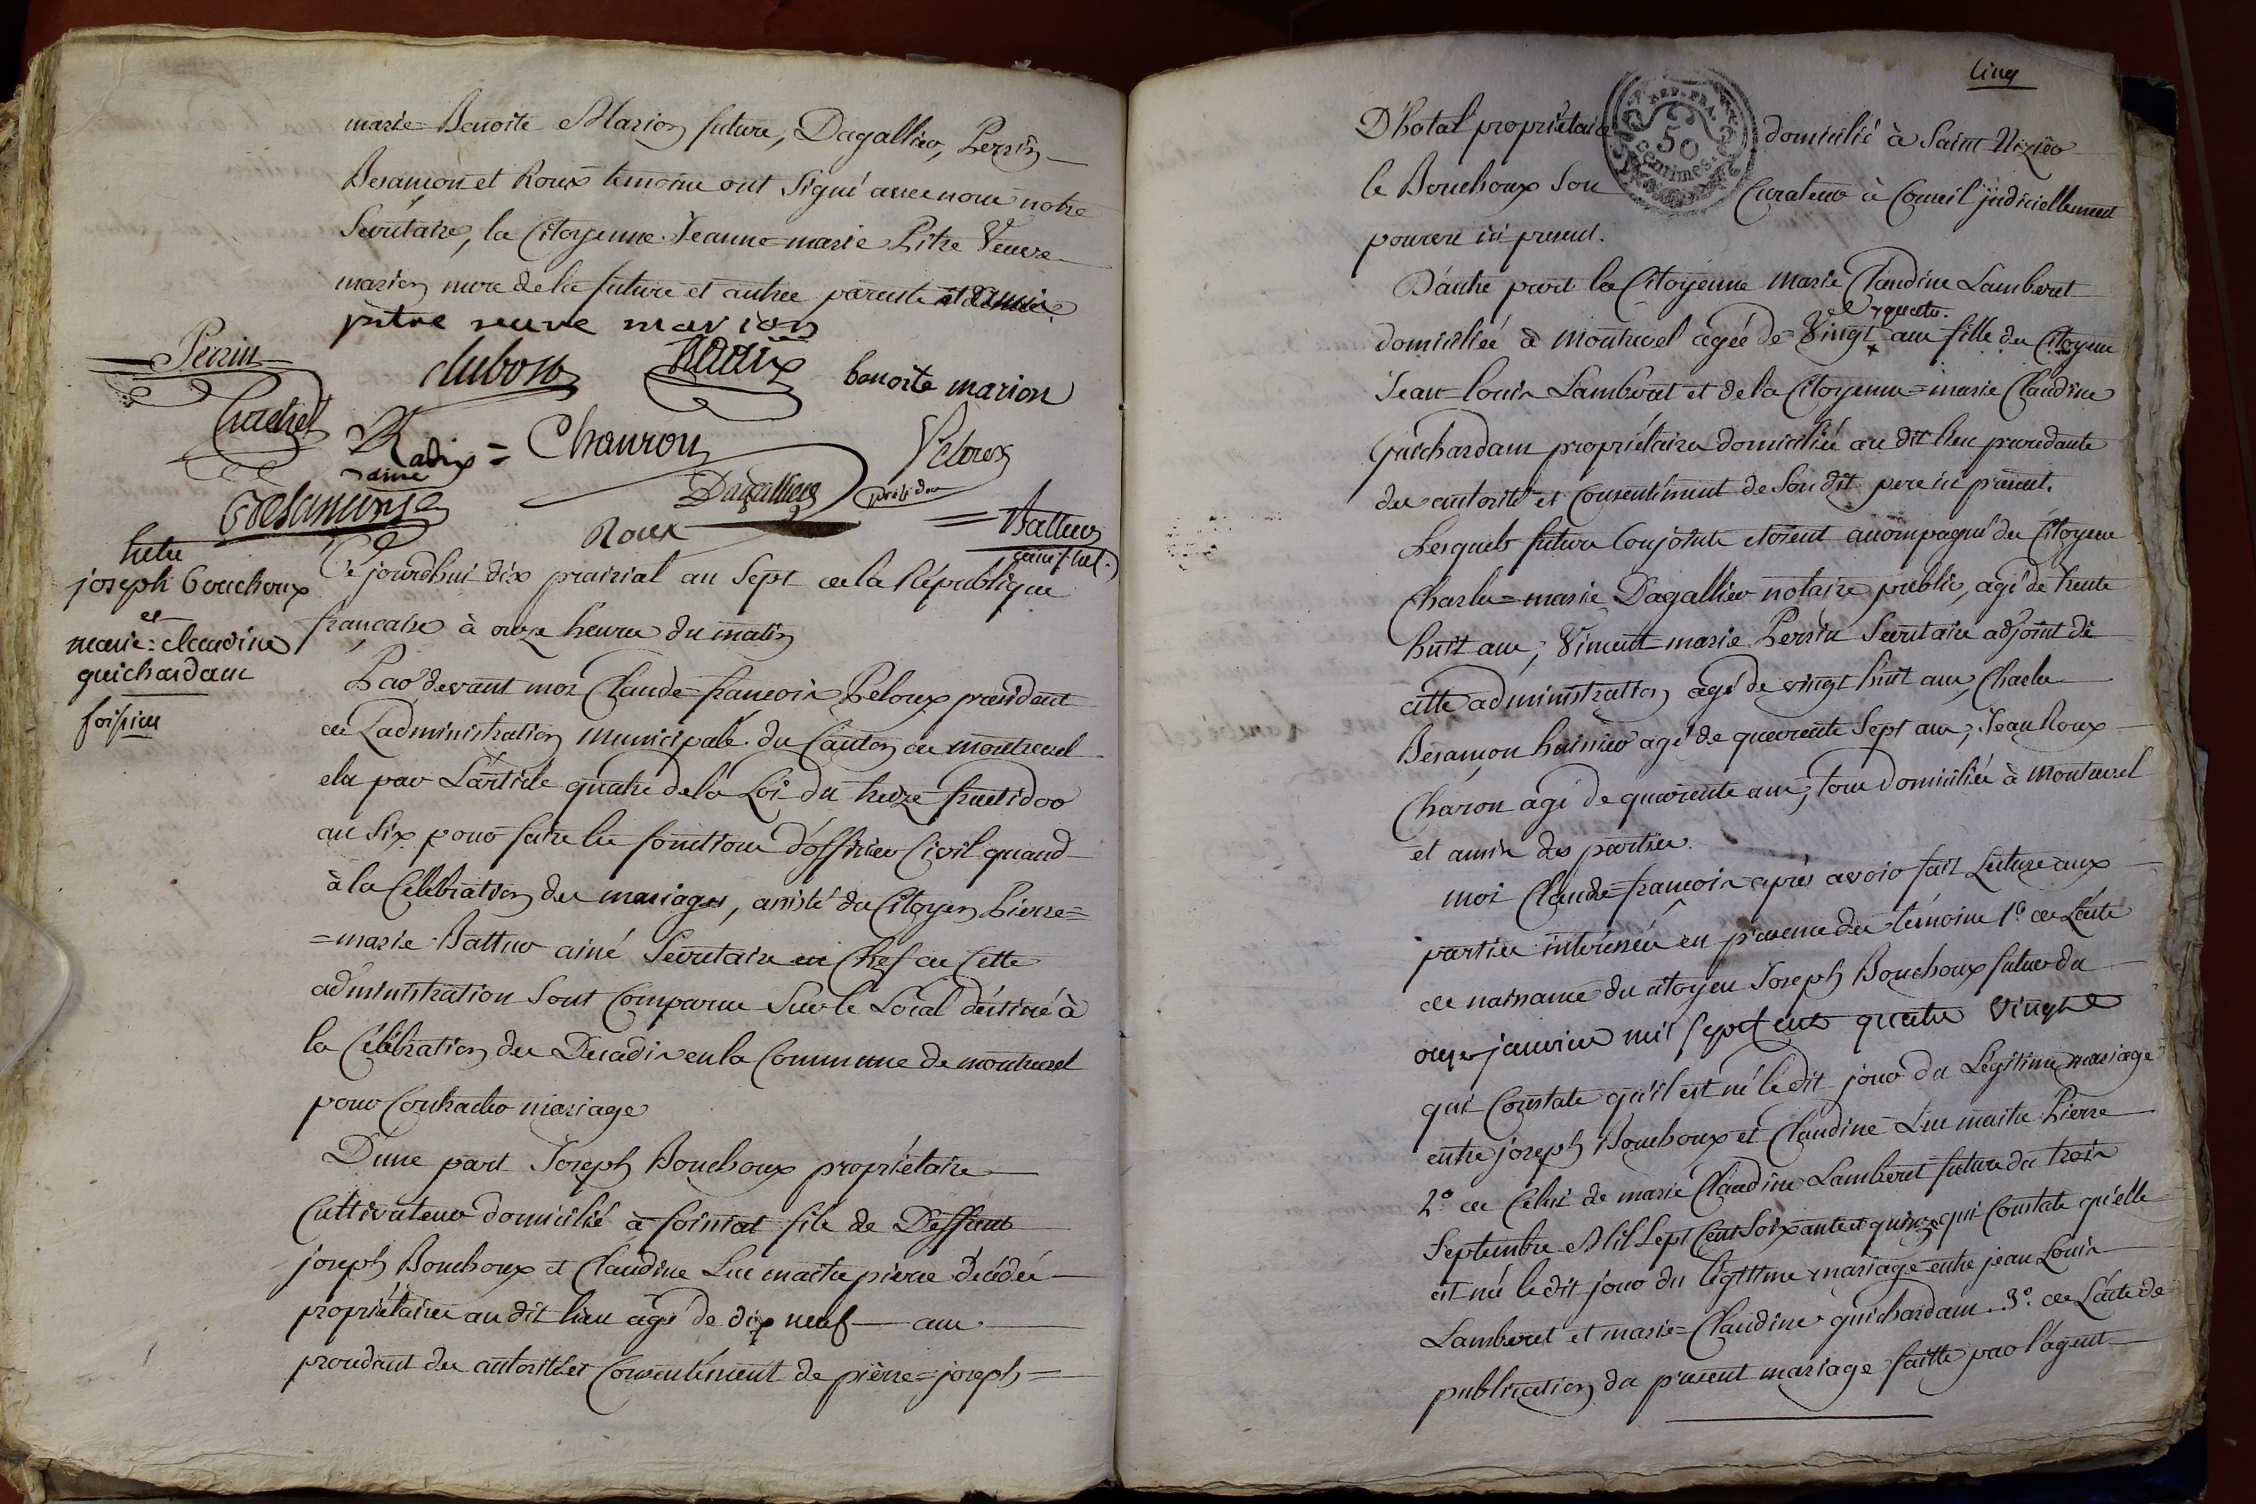 marie=Benoite Marion future, Dagallier, Perrin
Besançon et Roux temoins ont signé avec nous notre
Secrétaire, la Citoyenne Jeanne=marie Pitre Veuve
marion mere de la future et autres parents et amis.
pitre veuve marion
Perrin
dubost
benoite marion
Radix =
ainé
Chauvon
Peloux
président
Dagallier
Besançon
Roux
Battur
secrét.
entre
joseph bouchoux
et
marie=claudine
guichardam
foissiat
Ce jourdhui dix prairial an Sept de la République
francaise à onze heures du matin
Par devant moi Claude=francois Peloux president
de Ladministration municipale du Canton de montrevel
elu par Larticle quatre de la Loi du treize fructidor
an Six pour faire les fonctions d'officier Civil quand
à la Célébration des mariages, assisté du Citoyen Pierre=
=marie Battur ainé Secretaire en Chef de Cette
administration Sont Comparus Sur le Local déstiné à
la Célébration des Decadis en la Commune de montrevel
pour Contracter mariage
D'une part Joseph Bouchoux propriétaire
Cultivateur domicilié à foissiat fils de Deffunts
joseph Bouchoux et Claudine Luc maitre pierre décédés
propriétaires au dit lieu agé de dix neuf ans
procedant des autorité et Consentément de pierre=joseph=
Cinq
D'hotal propriétaire domicilié à Saint Nizier
REP. FRA.
50
centimes.
le Bouchoux Son Curateur à Conseil judiciellement
pourvu ici present.
D'autre part la Citoyenne Marie Claudine Lamberet
et quatre.
domiciliée à Montrevel agée de Vingt ans fille du Citoyen
Jean=louis Lamberet et de la Citoyenne=marie Claudine
Guichardam propriétaires domiciliés au dit lieu procedante
des autorité et Consentiment de Son dit pere ici présent.
Lesquels futurs Conjoints etoient accompagné du Citoyen
Charles=marie Dagallier notaire public, agé de trente
huit ans; Vincent=marie Perrin Secretaire adjoint de
cette administration agé de vingt huit ans, Charles
Besançon huissier agé de quarante Sept ans; Jean Roux
Charon agé de quarante ans; tous domiciliés à Montrevel
et amis des parties.
moi Claude=francois après avoir fait Lecture aux
parties interessées en presence des témoins 1.° de L'acte
de naissance du citoyen Joseph Bouchoux futur du
onze janvier mil sept cent quatre vingt
qui Constate qu'il est né le dit jour du Légitime mariage
entre joseph Bouchoux et Claudine Luc maitre Pierre
2.° de Celui de marie Claudine Lamberet future du trois
Septembre Mil Sept Cent Soixante et quinze qui Constate qu'elle
est née le dit jour du légitime mariage entre jean Louis
Lamberet et marie=Claudine guichardam. 3.° de L'acte de
publication du present mariage faitte par l'agent